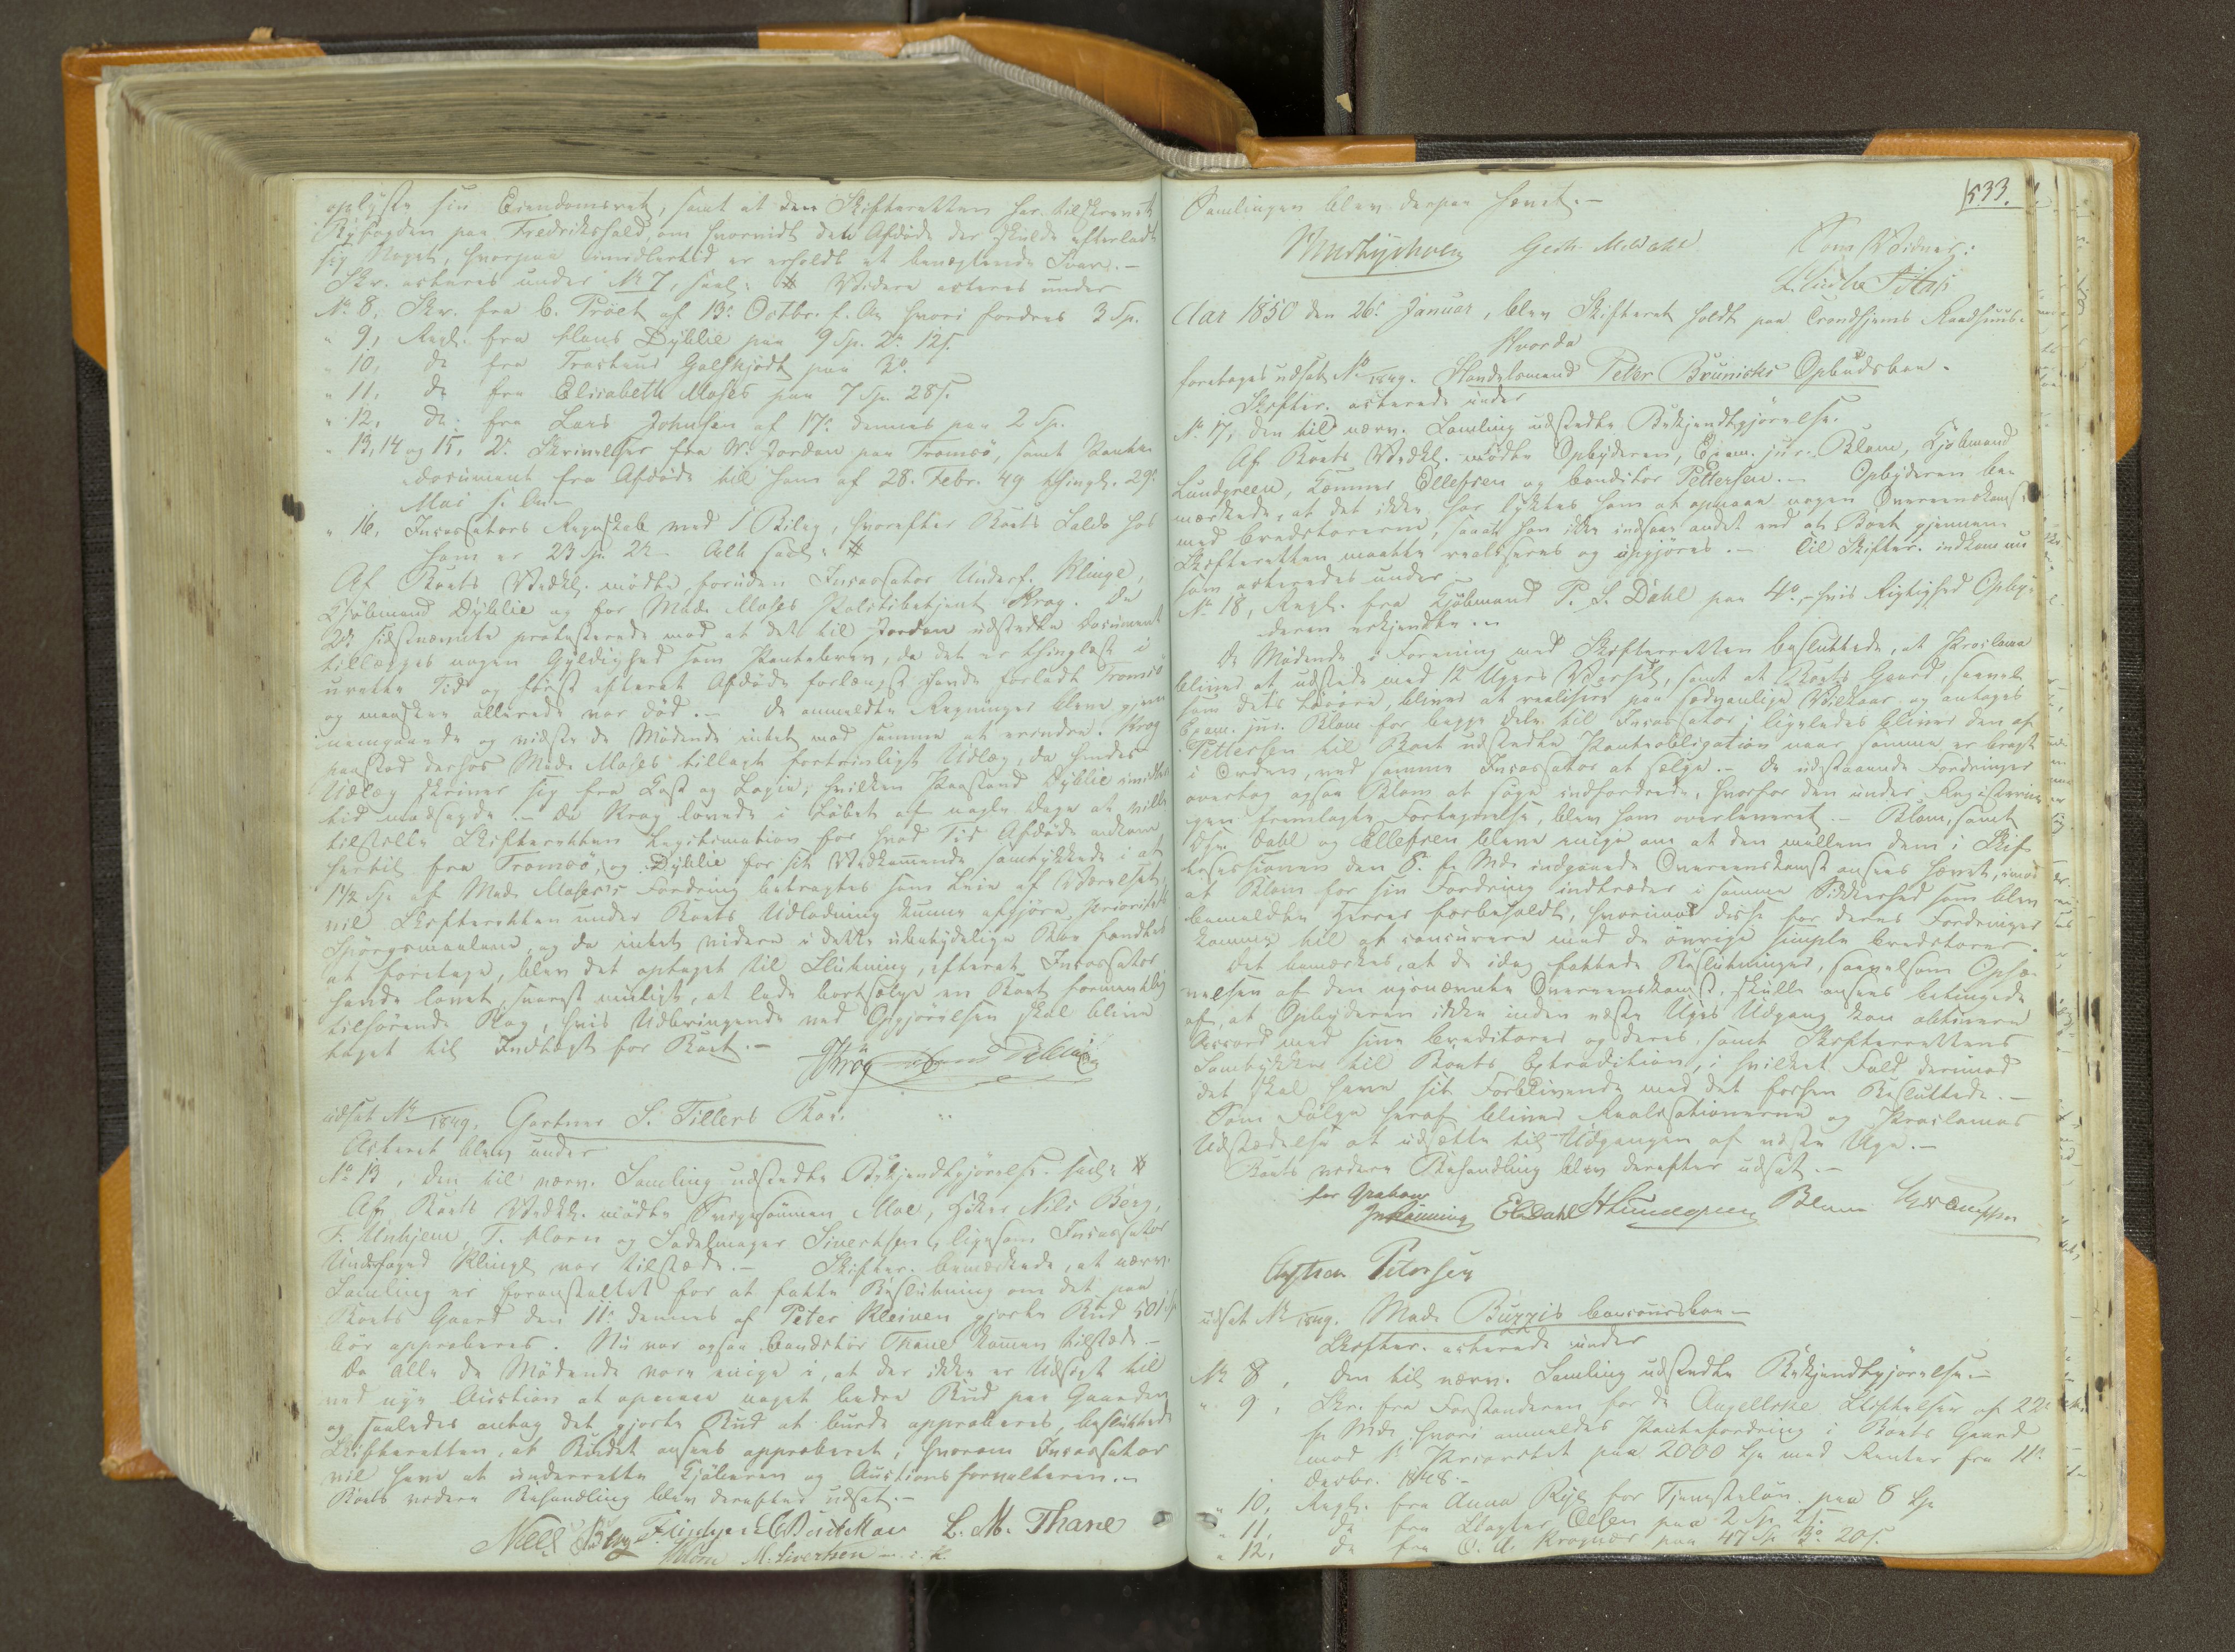 oplyste sin Eiendomsret, samt at den Skifteretten har tilskrevet
Byfogden paa Fredrikshald, om hvorvidt den Afdøde der skulde efterladt
sig Noget, hvorpaa imidlertid er erholdt et benægtende Svar. -
Skr. acteres under No 7, saal: # Videre acteres under
No 8, Skr. fra C. Tröet af 13de Octbr. f. A. hvori fordres 3 Sp.
" 9, Regn. fra Claus Dyblie paa 9 Sp. 2 # 12 s.
" 10, do fra Trostrud paa 3
" 11, do fra Elisabeth Moses paa 7 Sp. 28 s.
" 12, do fra Lars Johnsen af 17de dennes paa 2 Sp.
" 13, 14 og 15, 2de Skrivelser fra W. Jordan paa Tromsö, samt Pante-
document fra Afdøde til ham af 28. Febr. 49 thinglæst 29de
Mai s. A. -
" 16, Incassators Regnskab med 1 Bilag, hvorefter Boets Saldo hos
ham er 23 Sp. 2 # - Alt saal: #
Af Boets Vedkl. mödte, foruden Incassator Underf. Klinge,
Kjöbmand Dyblie og for Mad. Moses Politibetjent Krog. De
2de sidstnævnte protesterede mod at det til Jordan udstedte Document
tillægges nogen Gyldighed som Pantebrev, da det er thinglæst i
urette Tid og först efterat Afdöde forlængst havde forladt Tromsö
og maaskee allerede var död. - De anmeldte Regninger bleve gjen-
nemgaaede og vidste de Mödende intet mod samme at erindre. Krog
paastod derhos Mad. Moses tillagt fortrinligt Udlæg, da hendes
Udlæg skriver sig fra Kost og Logie; hvilken Paastand Dyblie imidler-
tid modsagde. - Da Krog lovede i Löbet af nogle Dage at ville
tilstille Skifteretten Legitimation for hvad Tid Afdöde ankom
hertil fra Tromsö, og Dyblie for sit Vedkommende samtykkede i at
1 1/2 Sp. af Mad. Moses's Fordring betragtes som Leie af Værelset,
vil Skifteretten under Boets Udlodning kunne afgjöre Prioritets
Spörgsmaalene, og da intet videre i dette ubetydelige Boe fandtes
at foretage, blev det optaget til Slutning, efterat Incassator
havde lovet, snarest muligt, at lade bortsælge en Boet formentlig
tilhörende Bog, hvis Udbringende ved Opgjörelsen skal blive
taget til Indtægt for Boet. -
Krog
udsat No /1849. Gartner S. Tillers Boe.
Acteret blev under
No 13, den til nærv. Samling udstedte Bekjendtgjörelse. saal: #
Af Boets Vedkl. mödte Svigersönnen Moe, Höker Nils Berg,
F. Unhjem, T. Kloen og Sadelmager Sivertsen, ligesom Incassator
Underfoged Klinge var tilstede. - Skifter. bemærkede, at nærv.
Samling er foranstaltet for at fatte Beslutning om det paa
Boets Gaard den 11te dennes af Peter Kleiven gjorte Bud 501 Sp.
bör approberes. Nu var ogsaa Conditor Thane kommen tilstede. -
Da alle de Mödende vare enige i, at der ikke er Udsigt til
ved nye Auction at opnaae noget bedre Bud paa Gaarden
og saaledes antog det gjorte Bud at burde approberes, besluttede
Skifteretten, at Budet ansees approberet, hvorom Incassator
vil have at underrette Kjöberen og Auctionsforvalteren. -
Boets videre Behandling blev derefter udsat. -
Neels Berg F. Unhjem L. M. Thane
M. Sivertsen m. i. P.
533.
Samlingen blev derpaa hævet. -
Som Vidner:
Aar 1850 den 26de Januar, blev Skifteret holdt paa Trondhjems Raadhuus.
Hvorda
foretages udsat No /1849. Handelsmand Peter Brunicks Opbudsboe.
Skifter. acterede under
No 17, den til nærv. Samling udstedte Bekjendtgjörelse.
Af Boets Vedkl. mödte Opbyderen, Exam. jur. Blom, Kjöbmand
Lundgreen, Kæmner Ellefsen og Conditor Pettersen. - Opbyderen be-
mærkede, at det ikke har lyktes ham at opnaae nogen Overeenskomst
med Creditorerne, saaat han ikke indsaae andet end at Boet gjennem
Skifteretten maatte realiseres og opgjöres. - Til Skifter. indkom nu
som acteredes under
No 18, Regn. fra Kjöbmand P. S. Dahl paa 4 # hvis Rigtighed Opby-
deren erkjendte. -
De Mödende i Forening med Skifteretten besluttede, at Proclama
bliver at udstede med 12 Ugers Varsel, samt at Boets Gaard, saavel-
som dets Lösöre, bliver at realisere paa sædvanlige Vilkaar og antages
Exam. jur. Blom for begge Dele til Incassator; ligeledes bliver den af
Pettersen til Boet udstedte Panteobligation naar samme er bragt
i Orden, ved samme Incassator at sælge. - De udstaaende Fordringer
overtog ogsaa Blom at söge indfordrede, hvorfor den under Registerin-
gen fremlagte Fortegnelse, blev ham overleveret. - Blom, samt
Dhrr. Dahl og Ellefsen bleve enige om at den mellem dem i Skif-
tesessionen den 8. f. Md. indgaaede Overeenskomst ansees hævet, imod
at Blom for sin Fordring indtræder i samme Sikkerhed som blev
bemeldte Herrer forbeholdt, hvorimod disse for deres Fordringer
komme til at concurrere med de övrige simple Creditorer.
Det bemærkes, at de idag fattede Beslutninger, saavelsom Ophæ-
velsen af den ovenævnte Overeenskomst, skulle ansees betingede
af, at Opbyderen ikke inden næste Uges Udgang kan obtinere
Accord med sine Creditorer og deres, samt Skifterettens
Samtykke til Boets Extradition, i hvilket Fald derimod
det skal have sit Forblivende med det forhen Besluttede. -
Som Fölge heraf bliver Realisationerne og Proclamas
Udstædelse at udsætte til Udgangen af næste Uge. -
Boets videre Behandling blev derefter udsat. -
for Grabow
Jn Rönning E Dahl H Lundgreen Blom
Petersen
udsat No /1849. Mad. Buzzis Concursboe -
Skifter. acterede under
No 8, den til nærv. Samling udstedte Bekjendtgjörelse. -
" 9, Skr. fra Forstanderen for de Angellske Stiftelser af 22de
f. Md. hvori anmeldes Pantefordring i Boets Gaard
mod 1ste Prioritet paa 2000 Sp. med Renter fra 11te
Decbr. 1848. -
" 10, Regn. fra Anna Rye for Tjenestelön paa 8 Sp.
" 11, do fra Slagter Olsen paa 2 Sp. 2 s.
" 12, do fra O. A. Krognæs paa 47 Sp. 3 # 20 s.